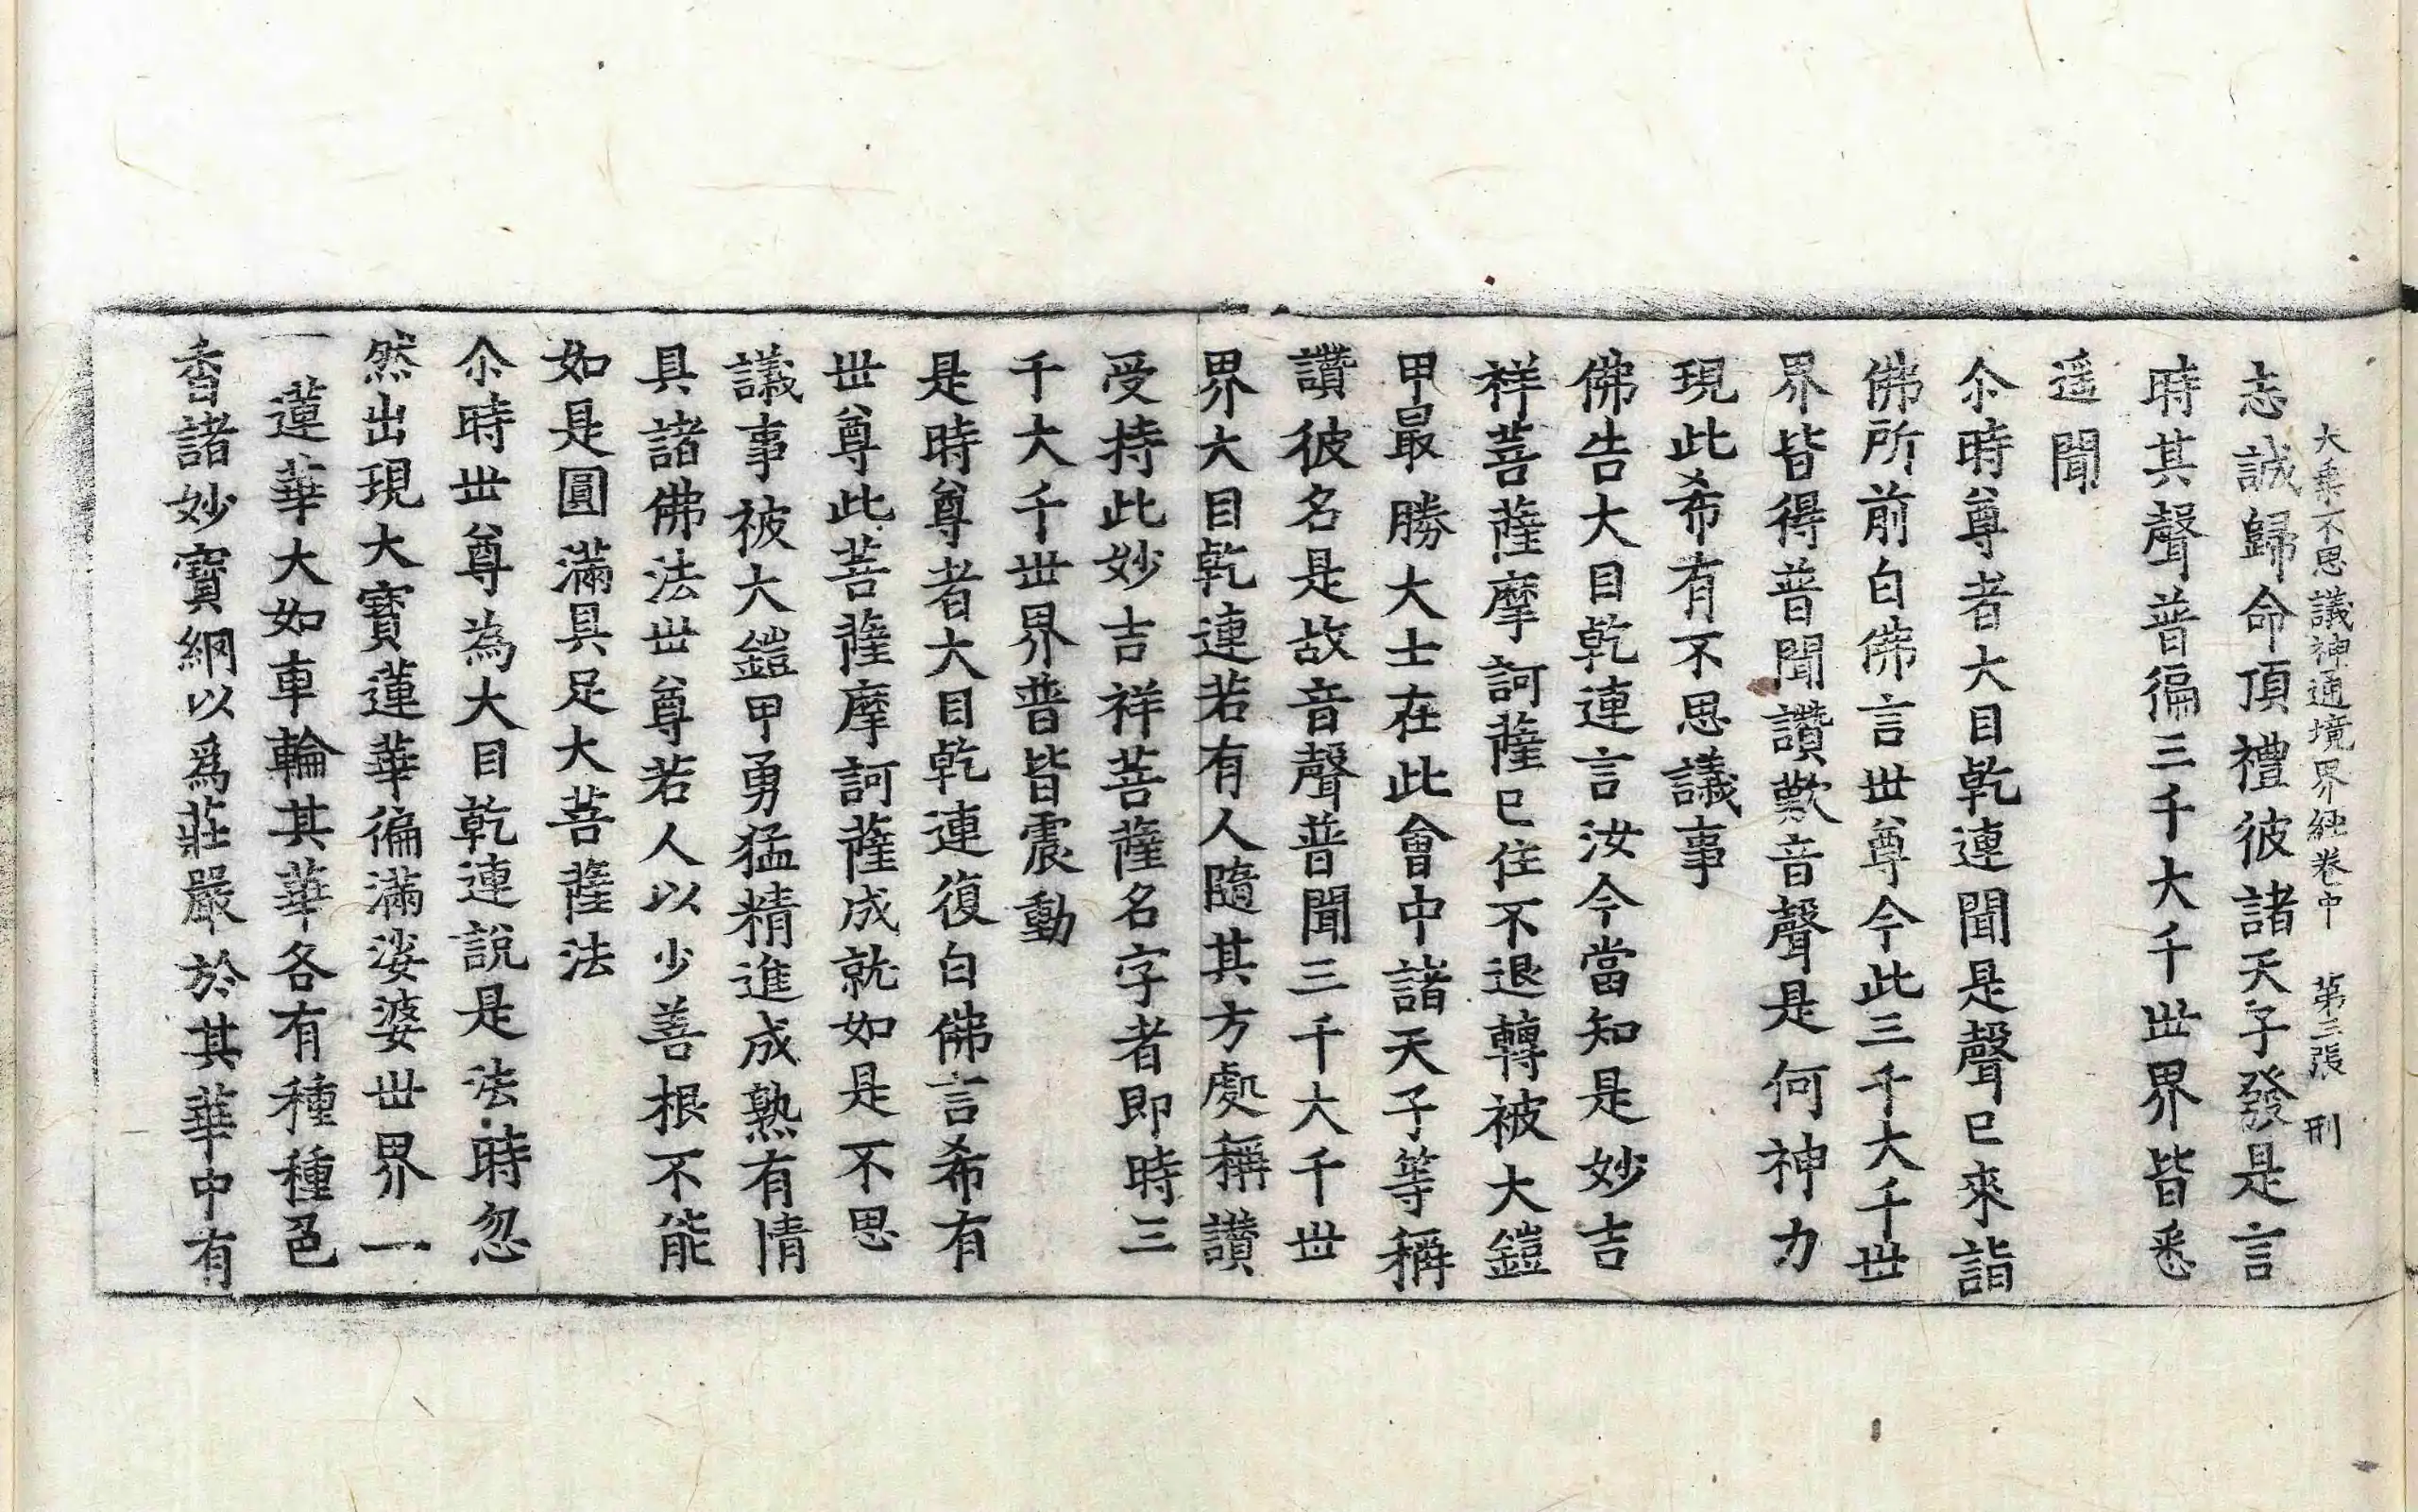 大乘不思議神通境界經卷中　第三張　刑
志誠歸命頂禮彼諸天子發是言
時其聲普徧三千大千世界皆悉
遥聞
尒時尊者大目乾連聞是聲已來詣
佛所前白佛言世尊今此三千大千世
界皆得普聞讚歎音聲是何神力
現此希有不思議事
佛告大目乾連言汝今當知是妙吉
祥菩薩摩訶薩已住不退轉被大鎧
甲最勝大士在此會中諸天子等稱
讚彼名是故音聲普聞三千大千世
界大目乾連若有人隨其方處稱讚
受持此妙吉祥菩薩名字者即時三
千大千世界普皆震動
是時尊者大目乾連復白佛言希有
世尊此菩薩摩訶薩成就如是不思
議事被大鎧甲勇猛精進成熟有情
具諸佛法世尊若人以少善根不能
如是圓滿具足大菩薩法
尒時世尊為大目乾連說是法時忽
然出現大寶蓮華徧滿娑婆世界一
一蓮華大如車輪其華各有種種色
香諸妙寶網以爲莊嚴於其華中有